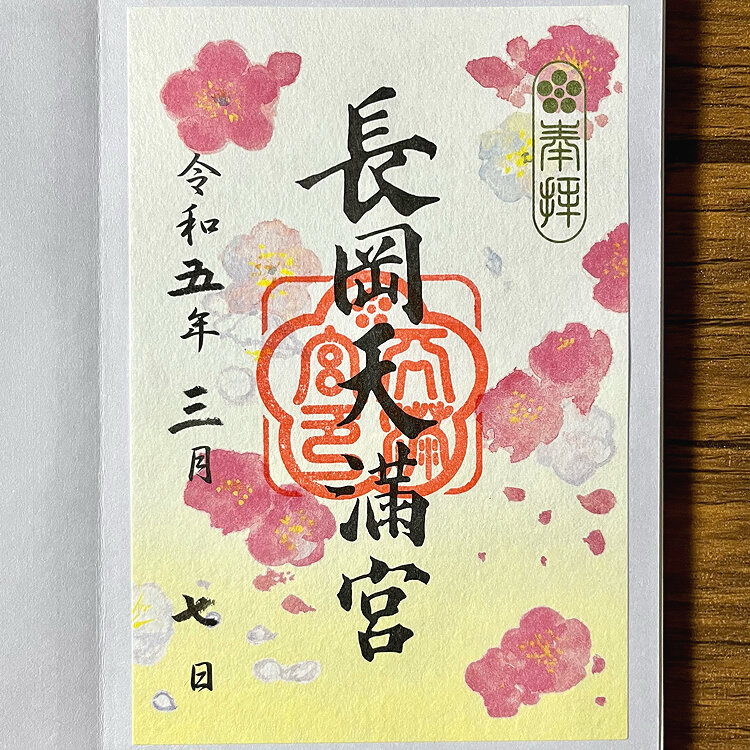 奉拝
長岡天満宮
令和五年 三月 七日